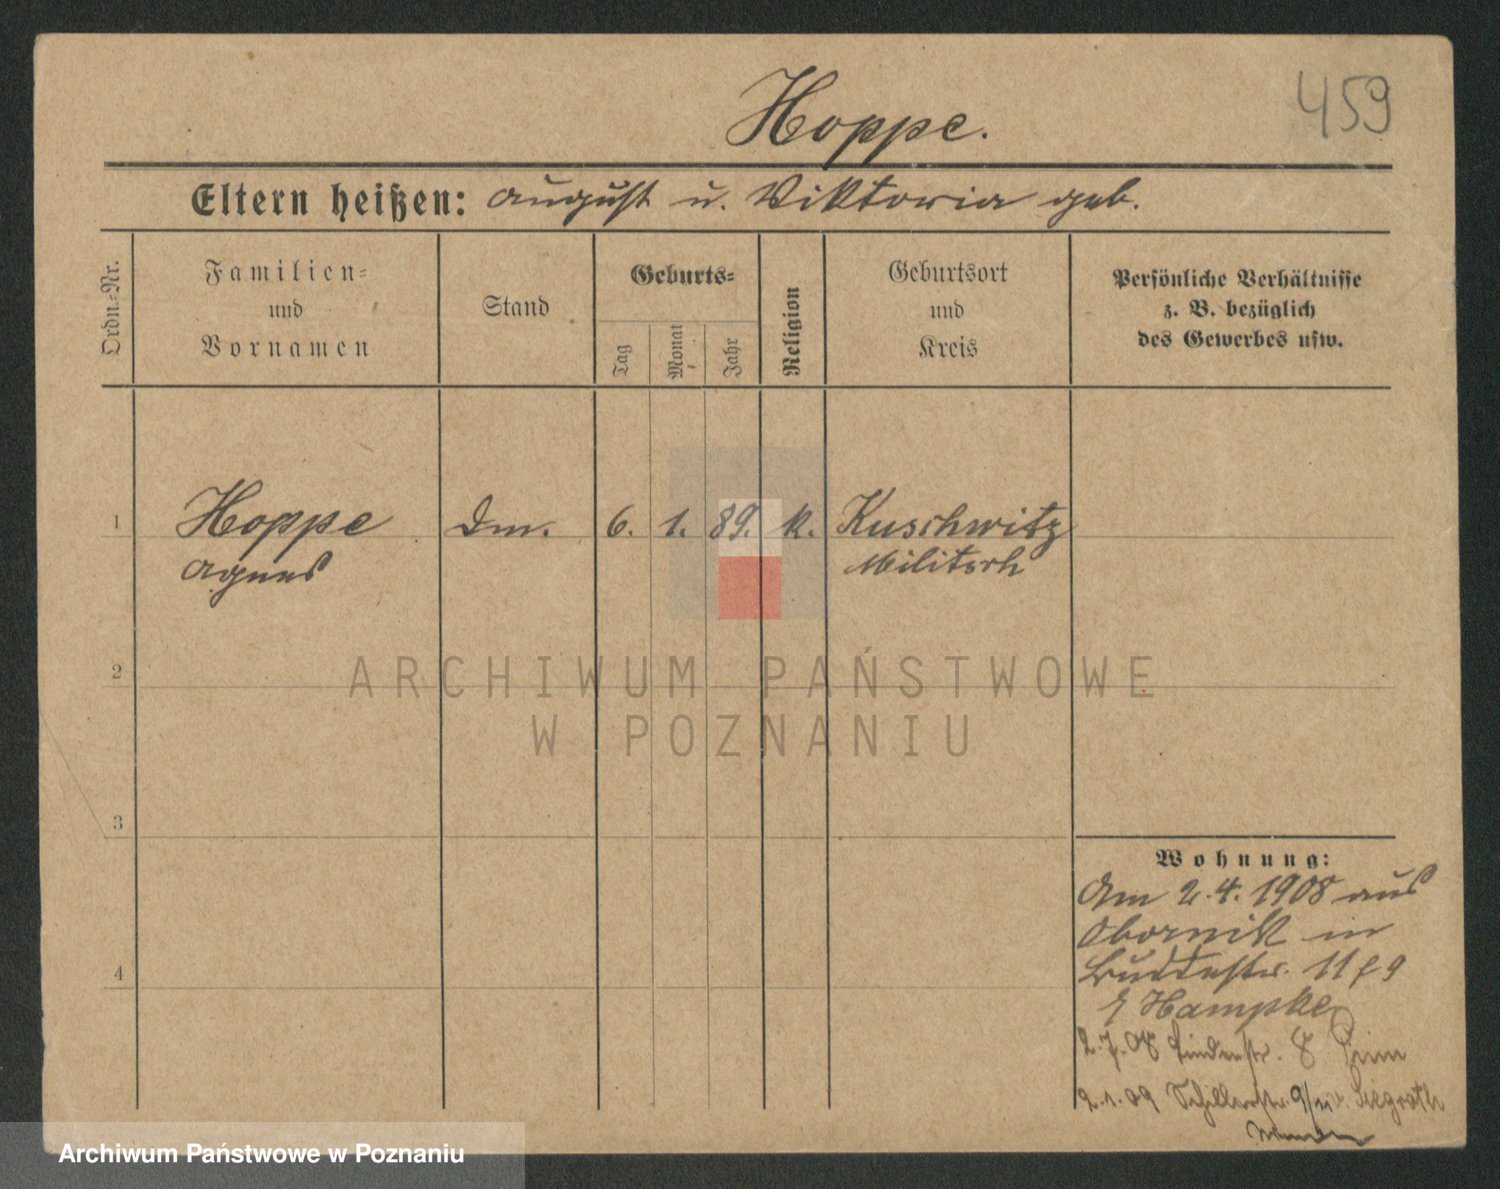 459
Hoppe.
Eltern heißen: August u. Viktoria geb.
Ordn.=Nr.
Familien=
und
Vornamen
Stand
Geburts=
Tag
Monat
Jahr
Religion
Geburtsort
und
Kreis
Persönliche Verhältnisse
z. B. bezüglich
des Gewerbes usw.
1 Hoppe Dm. 6. 1. 89. k. Kuschwitz
Agnes Militsch
2
ARCHIWUM PAŃSTWOWE
W POZNANIU
3
Wohnung:
Am 2.4.1908 aus
Obornik in
11
4
Hampke
2.7.08 Lindenstr. 8
2.1.09 Schillerstr. Siegroth
Archiwum Państwowe w Poznaniu